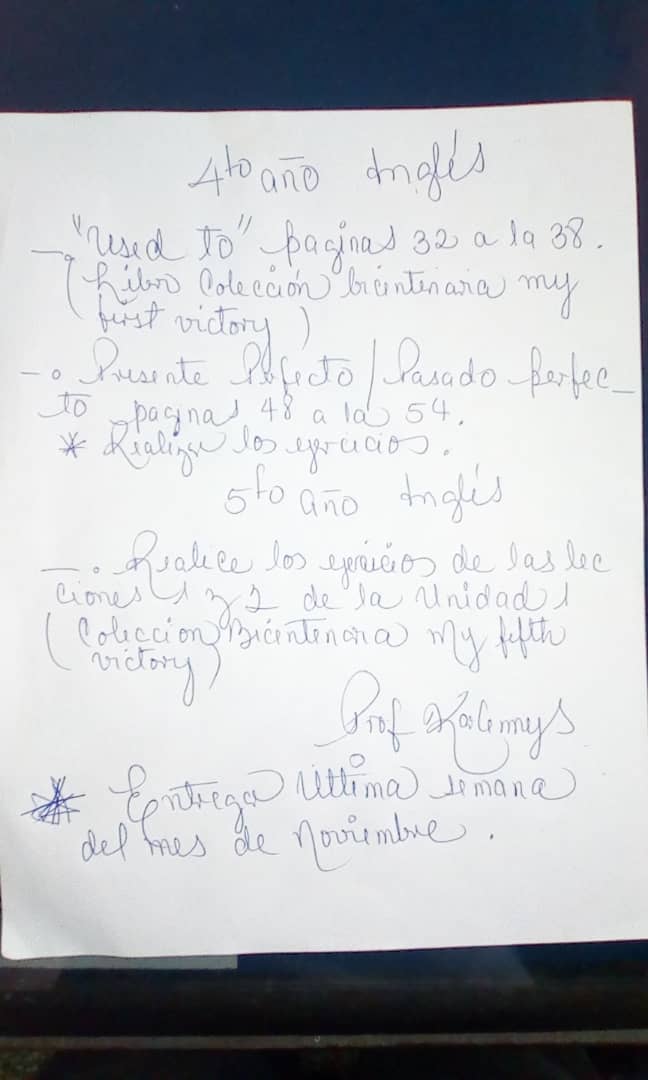 4to año Inglés
-. "Used to" paginas 32 a la 38.
(Libro Colección bicentenaria my
first victory)
-. Presente Perfecto / Pasado perfec_
to paginas 48 a la 54.
* Realizar los ejercicios.
5to año Inglés
-. Realice los ejercicios de las lec
ciones 1 y 2 de la Unidad 1
(Coleccion Bicentenaria my fifth
victory)
Prof
* Entrega última semana
del mes de noviembre.